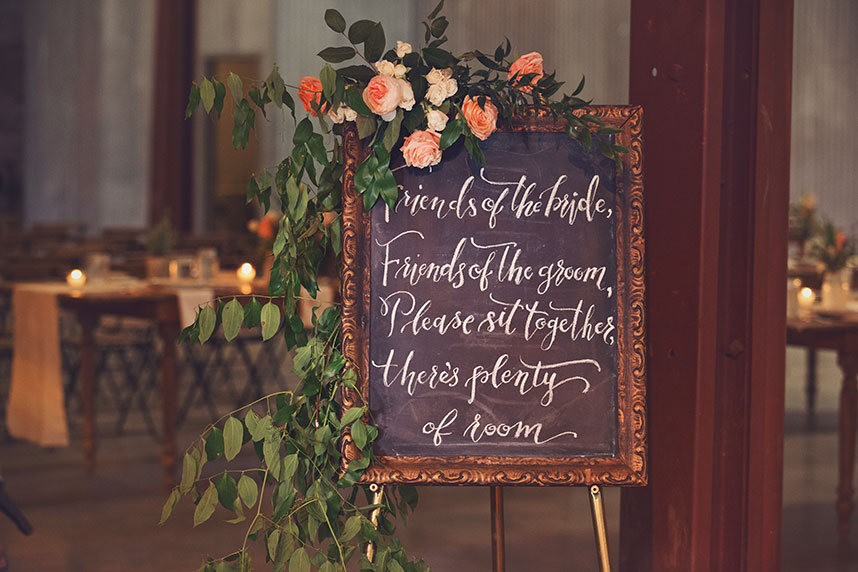 Friends of the bride,
Friends of the groom,
Please sit together,
there's plenty
of room